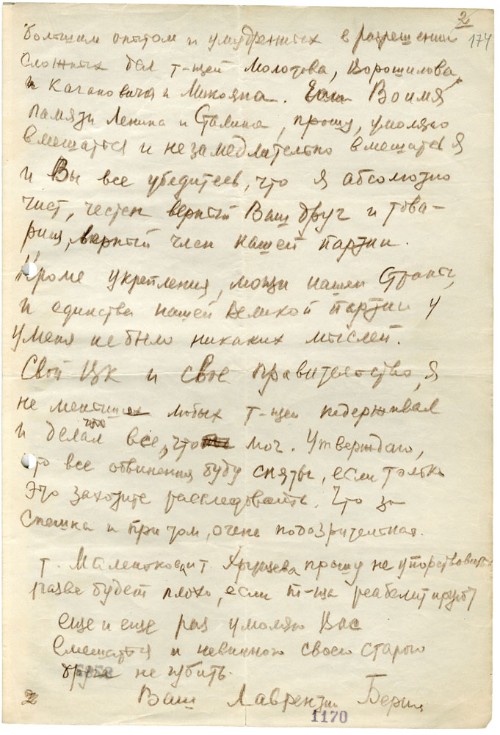 2
174
большим опытом и умудренных в разрешении
сложных дел т-щей Молотова, Ворошилова,
и Кагановича и Микояна. Во имя
памяти Ленина и Сталина, прошу, умоляю
вмешаться и незамедлительно вмешатся
и Вы все убедитесь, что я абсолютно
чист, честен верный Ваш друг и това-
рищ, верный член нашей партии.
Кроме укрепления, мощи нашей Страны,
и единства нашей Великой партии у
меня не было никаких мыслей.
Свой ЦК и свое правительство, я
не меньше любых т-щей подерживал
и делал все, что мог. Утверждаю,
что все обвинения буду сняты, если только
это захотите расследовать. Что за
спешка и при том, очень подозрительная.
т. Маленкова и т Хрущева прошу не упорствовать
разве будет плохо, если т-ща реабелитируют
еще и еще раз умоляю Вас
вмешаться и невинного своего старого
друга не губить.
Ваш Лаврентий Берия
2
1170